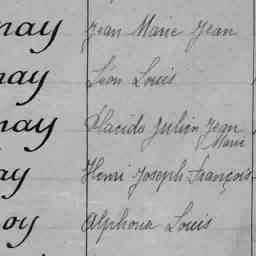 nay Jean Marie Jean
nay Léon Louis
nay Placide Julien Jean
Marie
ay Henri Joseph François
oy Alphonse Louis